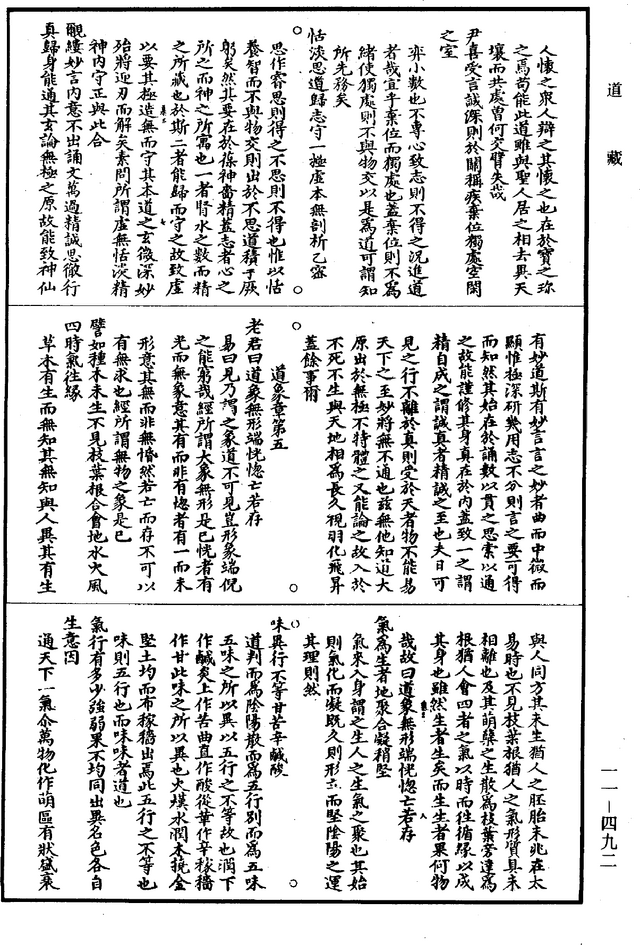 道藏
人懷之眾人辯之其懷之也在於寶之珎
之焉苟能此道雖與聖人居之相去異天
壤而共處曾何交臂失哉
尹喜受言誠深則於關稱疾棄位獨處空閑
之室
弈小數也不專心致志則不得之況進道
者哉宜乎棄位而獨處也蓋棄位則不爲
緒使獨處則不與物交以是爲道可謂知
所先務矣
恬淡思道歸志守一極虛本無剖析乙密
思作睿思則得之不思則不得也惟以恬
養智而不與物交則出於不思道積于厥
躬矣然其要在於葆神嗇精蓋志者心之
所之而神之所寓也一者腎水之數而精
之所藏也於斯二者能歸而守之故致虛
以要其極造無而守其本道之玄微深妙
殆將迎刃而解矣素問所謂虛無恬淡精
神内守正與此合
覶縷妙言内意不出誦文萬過精誠思徹行
真歸身能通其玄論無極之原故能致神仙
有妙道斯有妙言言之妙者曲而中微而
顯惟極深研幾用志不分則言之要可得
而知然其始在於誦數以貫之思索以通
之故能謹修其身真在於内蓋致一之謂
精自成之謂誠真者精誠之至也夫日可
見之行不離於真則受於天者物不能易
天下之至妙將無不通也兹無他知道大
原出於無極不特體之又能論之故入於
不死不生與天地相爲長久視羽化飛昇
蓋餘事爾
道象章第五
老君曰道象無形端恍惚亡若存
易曰見乃謂之象道不可見豈形象端倪
之能窮哉經所謂大象無形是已恍者有
光而無象意其有而非有惚者有一而未
形意其無而非無惛然若亡而存不可以
有無求也經所謂無物之象是已
譬如種木未生不見枝葉根合會地水火風
四時氣往緣
草木有生而無知其無知與人異其有生
與人同方其未生猶人之胚胎未兆在太
易時也不見枝葉根猶人之氣形質具未
相離也及其萌蘖之生散爲枝葉旁達爲
根猶人會四者之氣以時而往循緣以成
其身也雖然生者生矣而生生者果何物
哉故曰道象無形端恍惚亡若存
氣爲生者地聚合凝稍堅
氣來入身謂之生人之生氣之聚也其始
則氣化而凝既久則形立而堅陰陽之運
其理則然
味異行不等甘苦辛鹹酸
道判而爲陰陽散而爲五行別而爲五味
五味之所以異以五行之不等故也潤下
作鹹炎上作苦曲直作酸從革作辛稼穡
作甘此味之所以異也火熯水潤木撓金
堅土均而布稼穡出焉此五行之不等也
味則五行也而味味者道也
氣行有多少強弱果不均同出異名色各自
生意因
通天下一氣尒萬物化作萌區有狀盛衰
一一—四九二